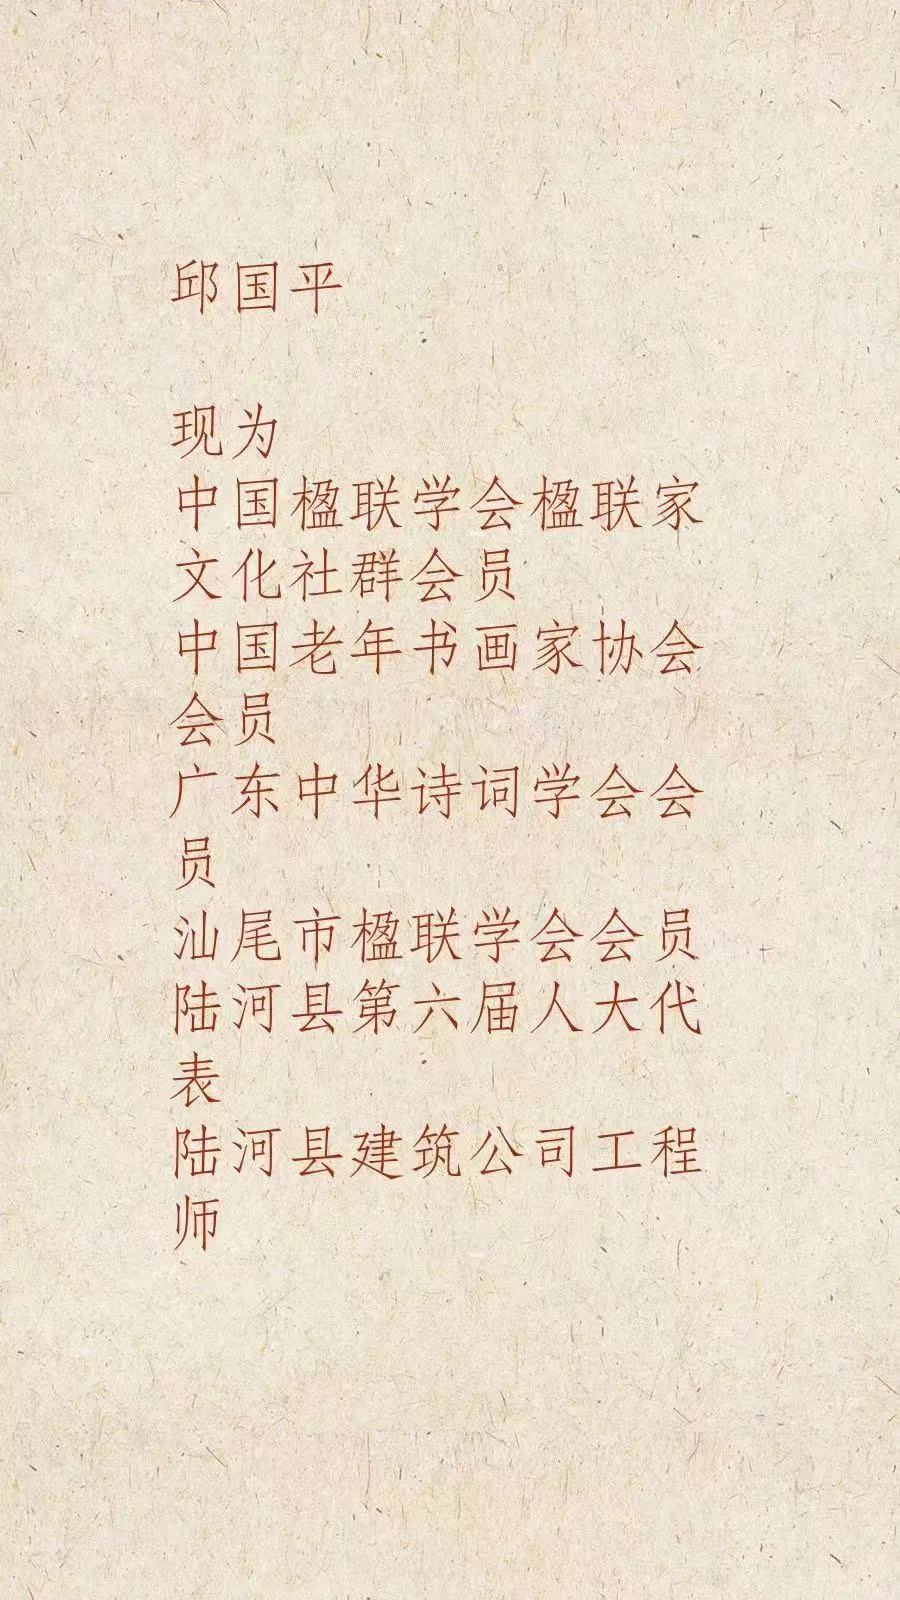 邱国平
现为
中国楹联学会楹联家
文化社群会员
中国老年书画家协会
会员
广东中华诗词学会会
员
汕尾市楹联学会会员
陆河县第六届人大代
表
陆河县建筑公司工程
师